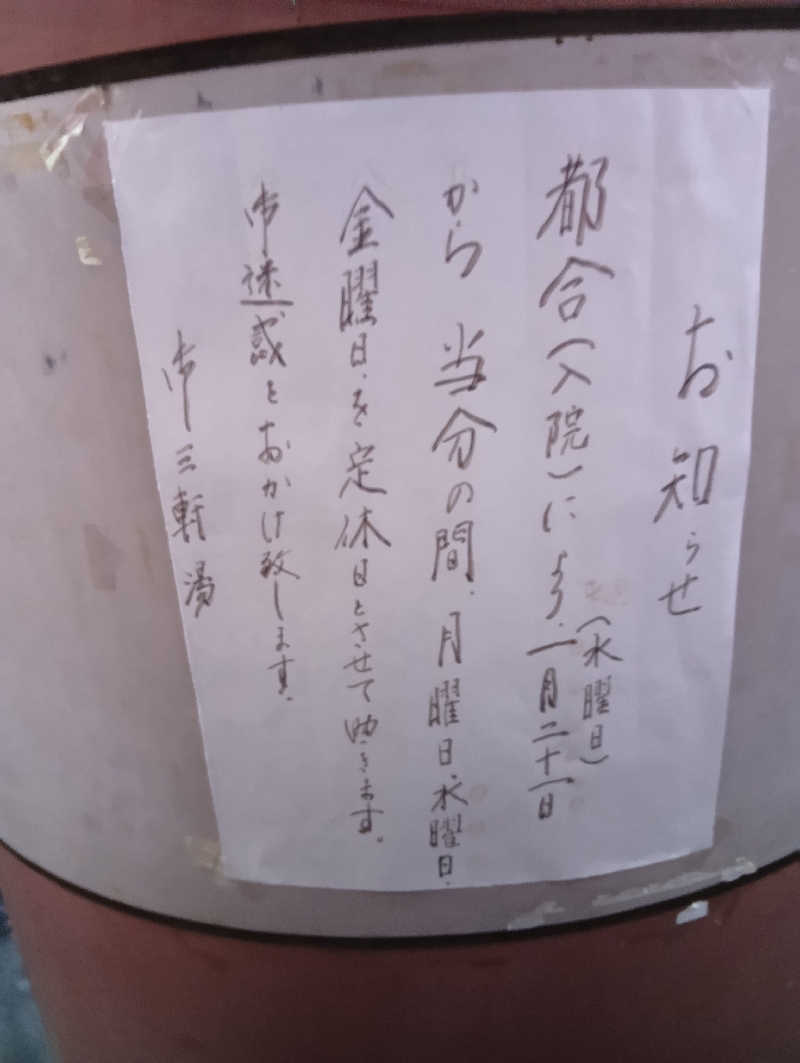 お知らせ
都合(入院)により、一月二十一日
(水曜日)
から当分の間、月曜日、水曜日、
金曜日、を定休日とさせて頂きます。
御迷惑をおかけ致します。
御三軒湯